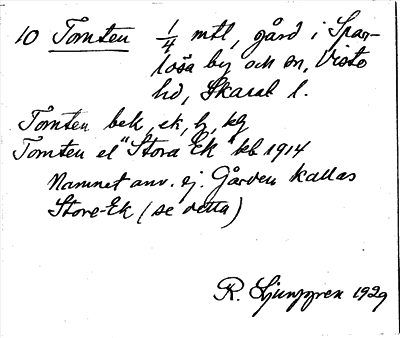 10 Tomten 1/4 mtl, gård i Spar-
lösa by och sn, Viste
hd, Skarab. l.
Tomten bek, ek, hj, kg
Tomten el "Stora Ek" kb 1914
Namnet anv. ej. Gården kallas
Store-Ek (se detta)
R. Ljunggren 1929